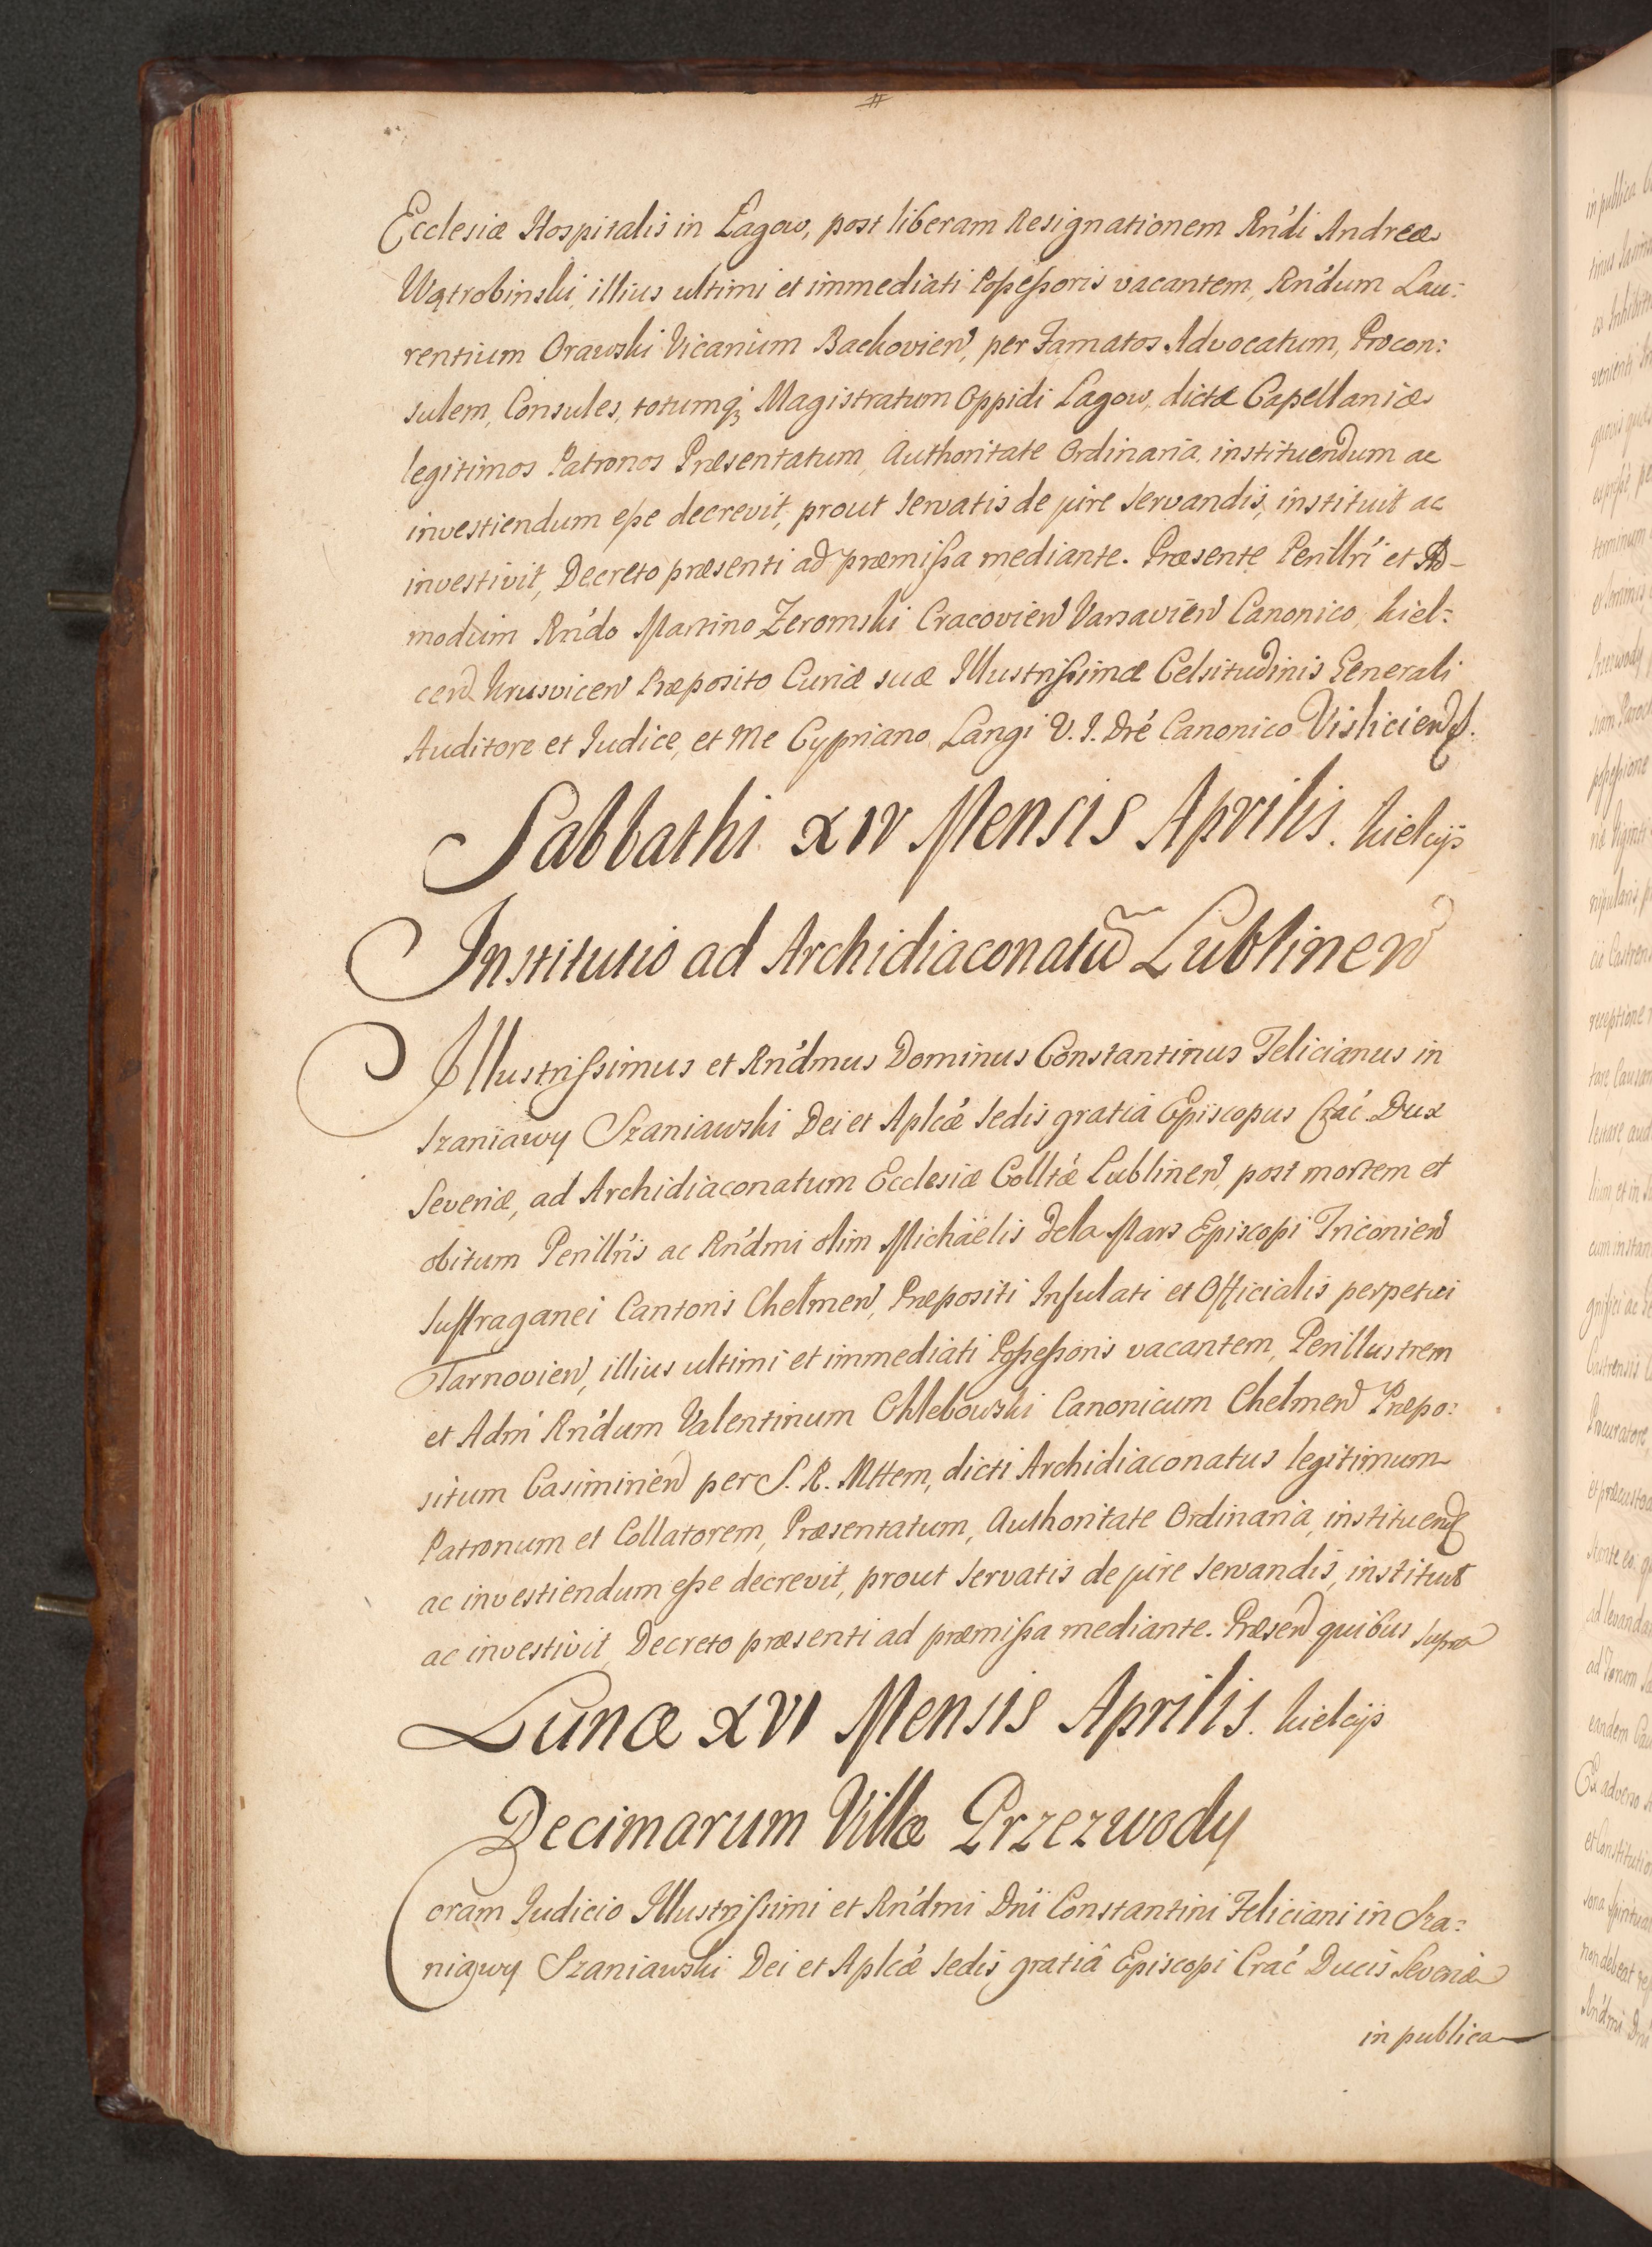 Ecclesiæ Hospitalis in Łagow, post liberam Resignationem Rńdi Andreæ
Wątrobinski, illius ultimi et immediati Poſseſsoris vacantem, Rńdum Lau:
rentium Orawski Vicarium Backovien, per Famatos Advocatum, Procon:
sulem, Consules, totumq; Magistratum Oppidi Lagow, dictæ Capellaniæ
legitimos Patronos Præsentatum, Authoritate Ordinaria, instituendum ac
investiendum eſse decrevit, prout servatis de jure servandis, instituit ac
investivit, Decreto præsenti ad præmiſsa mediante. Præsente Perillri et Ad-
modum Rńdo Martino Zeromski Cracovien Varsavien Canonico, Kiel:
cen Krusvicen Præposito Curiæ suæ Illustriſsimæ Celsitudinis Generali
Auditore et Iudice, et Me Cypriano Langi V. I. Dré Canonico Vislicien
Sabbathi XIV Mensis Aprilis. Kielcijs
Institutio ad Archidiaconatū Lublinen
Illustriſsimus et Rńdmus Dominus Constantinus Felicianus in
Szaniawy Szaniawski Dei et Aplcæ Sedis gratia Episcopus Crać Dux
Severiæ, ad Archidiaconatum Ecclesiæ Colltæ Lublinen, post mortem et
obitum Perillris ac Rńdmi olim Michaëlis Dela Mars Episcopi Triconien
Suffraganei Cantoris Chelmen, Præpositi Infulati et Officialis perpetui
Tarnovien, illius ultimi et immediati Poſseſsoris vacantem, Perillustrem
et Adm Rńdum Valentinum Chlebowski Canonicum Chelmen Præpo:
situm Casimirien per S. R. Mttem, dicti Archidiaconatus legitimum
Patronum et Collatorem, Præsentatum, Authoritate Ordinaria, instituend
ac investiendum eſse decrevit, prout servatis de jure servandis, instituit
ac investivit, Decreto præsenti ad præmiſsa mediante. Præsen quibus supra
Lunæ XVI Mensis Aprilis. Kielcijs
Decimarum Villæ Przezwody
Coram Iudicio Illustriſsimi et Rńdmi Dni Constantini Feliciani in Sza:
niawy Szaniawski Dei et Aplcæ Sedis gratiâ Episcopi Crać Ducis Severiæ
in publica